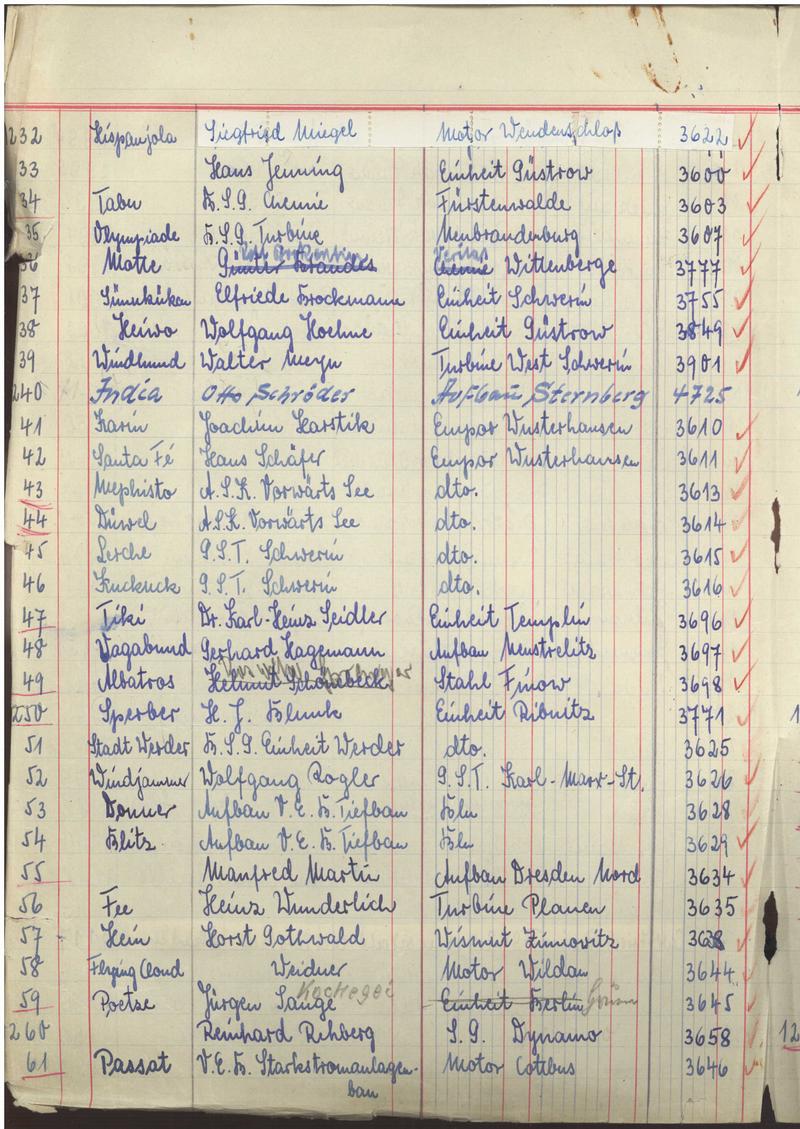 232 Hispanjola Siegfried Miegel Motor Wendenschloß 3622
33 Hans Jenning Einheit Güstrow 3600
34 Tabu B.S.G. Chemie Fürstenwalde 3603
35 Olympiade B.S.G. Turbine Neubrandenburg 3607
36 Motte Günter Brandes Chemie Veritas Wittenberge 3777
37 Elfriede Brockmann Einheit Schwerin 3755
38 Heiwo Wolfgang Hoehne Einheit Güstrow 3849
39 Windhund Walter Meyn Turbine West Schwerin 3901
240 India Otto Schröder Aufbau Sternberg 4725
41 Karin Joachim Karstik Empor Wusterhausen 3610
42 Santa Fé Hans Schäfer Empor Wusterhausen 3611
43 Mephisto A.S.K. Vorwärts See dto. 3613
44 Düwel A.S.K. Vorwärts See dto. 3614
45 Lerche G.S.T. Schwerin dto. 3615
46 Kuckuck G.S.T. Schwerin dto. 3616
47 Tiki Dr. Karl-Heinz Seidler Einheit Templin 3696
48 Vagabund Gerhard Hagemann Aufbau Neustrelitz 3697
49 Albatros Helmut Schönbeck Stahl Finow 3698
250 Sperber H. J. Blunk Einheit Ribnitz 3771
51 Stadt Werder B.S.G. Einheit Werder dto. 3625
52 Windjammer Wolfgang Rogler G.S.T. Karl-Marx-St. 3626
53 Donner Aufbau V.E.B. Tiefbau Bln 3628
54 Blitz Aufbau V.E.B. Tiefbau Bln 3629
55 Manfred Martin Aufbau Dresden Nord 3634
56 Fee Heinz Wunderlich Turbine Plauen 3635
57 Hein Horst Gothwald Wismut Zinnowitz 3638
58 Flying Cloud Weidner Motor Wildau 3644
59 Poetse Jürgen Sange Einheit Berlin 3645
260 Reinhard Rehberg S.G. Dynamo 3658
61 Passat V.E.B. Starkstromanlagen- Motor Cottbus 3646
bau